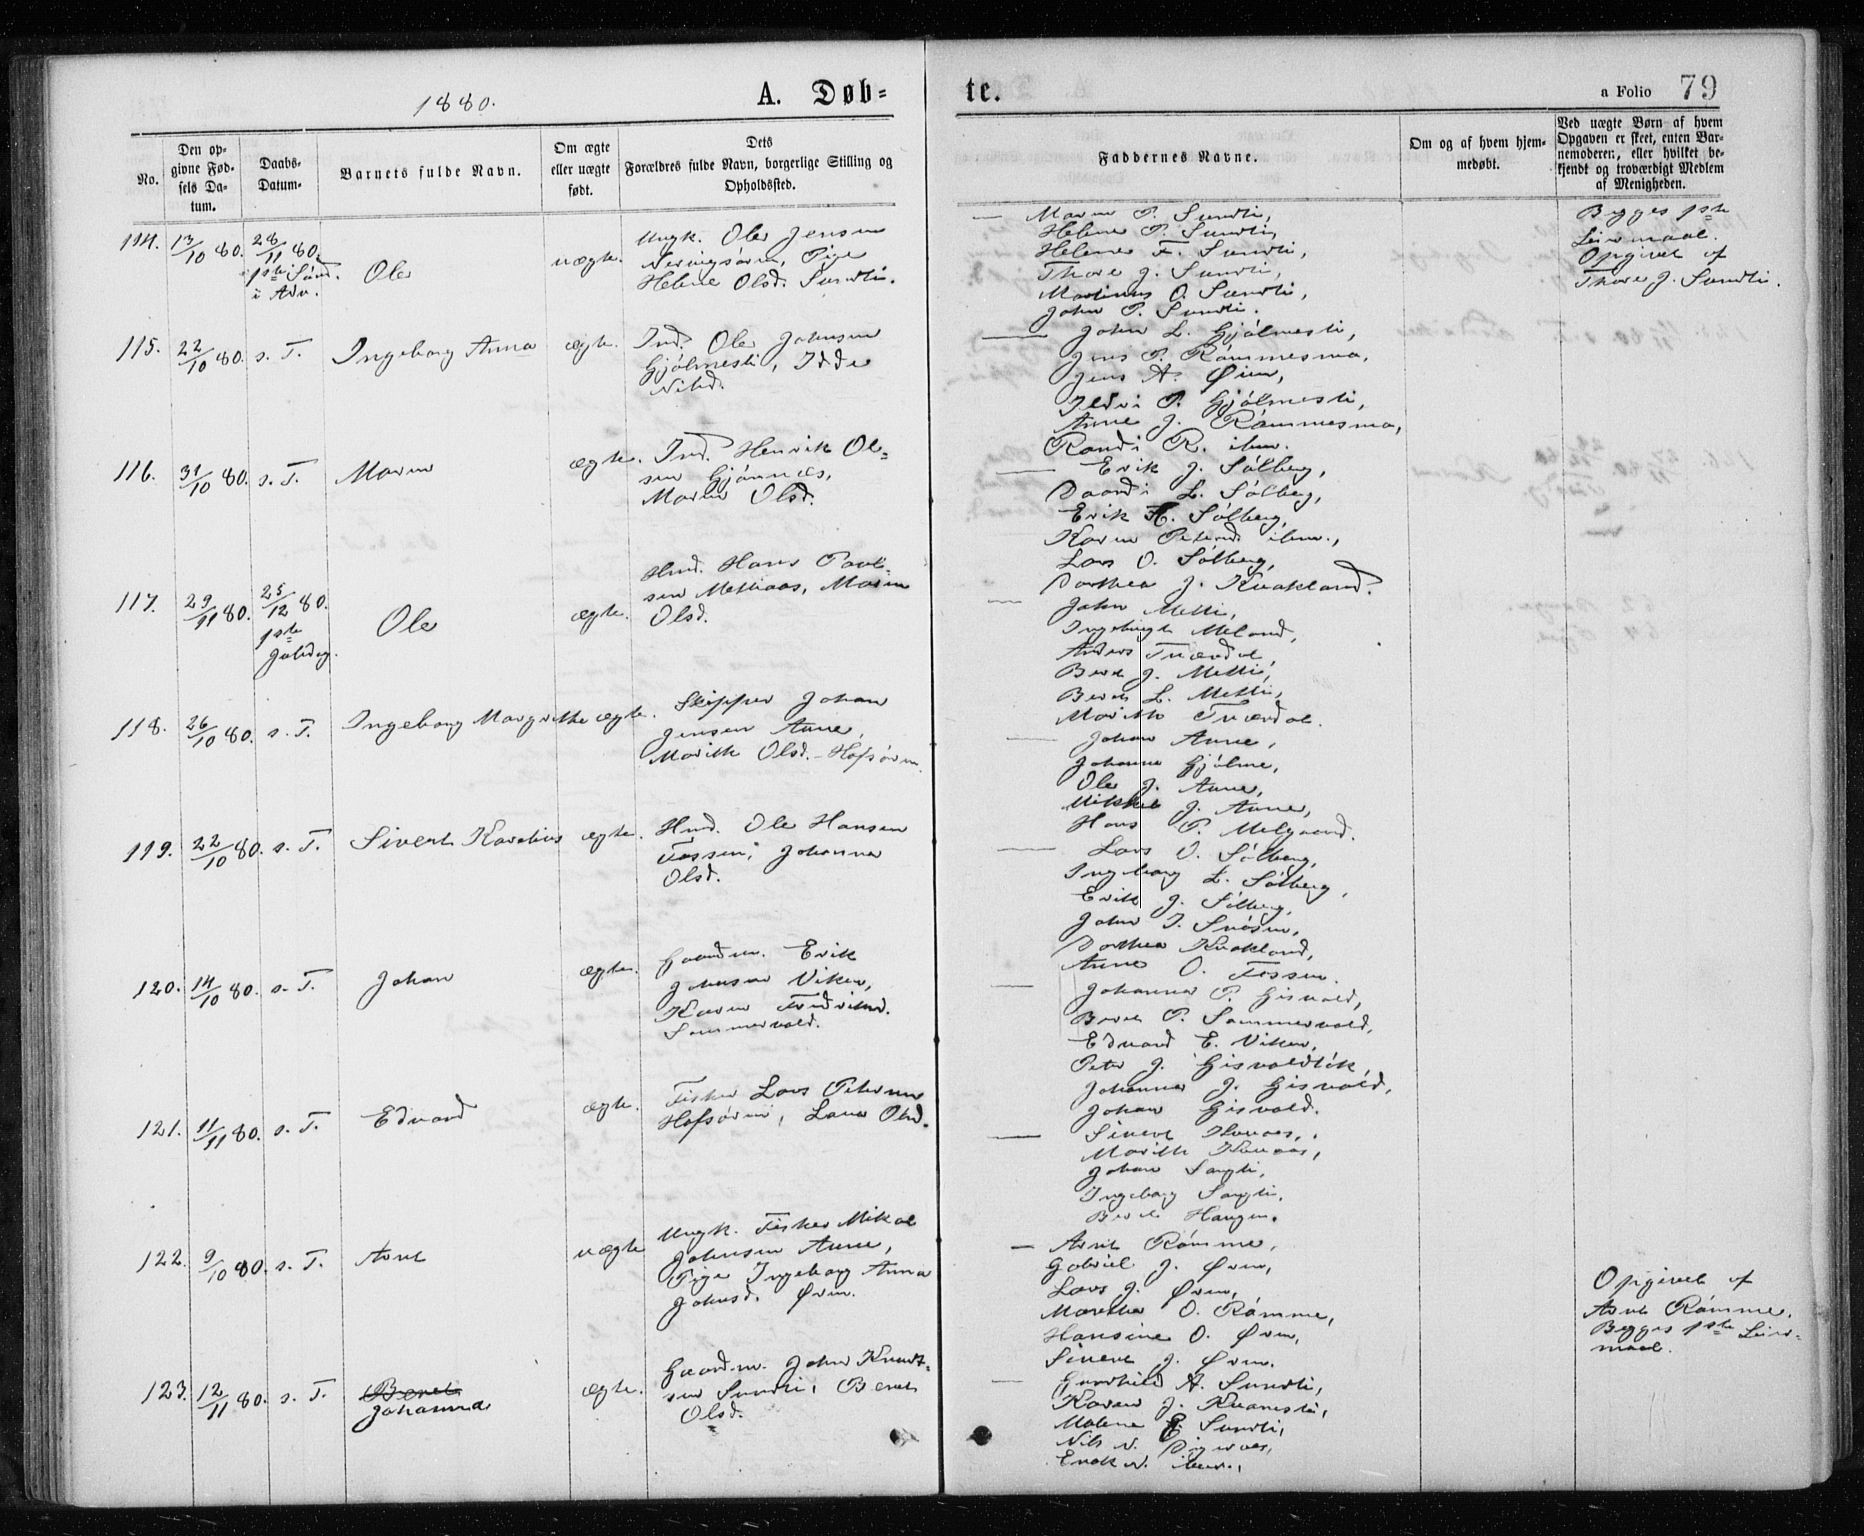 1880.
A. Døb-
te.
a Folio 79
No.
Den op-
givne Fød-
sels Da-
tum.
Daabs-
Datum.
Barnets fulde Navn.
Om ægte
eller uægte
født.
Dets
Forældres fulde Navn, borgerlige Stilling og
Opholdssted.
Faddernes Navne.
Om og af hvem hjem-
medøbt.
Ved uægte Børn af hvem
Opgaven er skeet, enten Bar-
nemoderen, eller hvilket be-
kjendt og troværdigt Medlem
af Menigheden.
114. 13/10 80. 28/11 80.
1ste Sønd.
i Adv.
Ole
uægte.
Ungk. Ole Jensen
Pige
Helene Olsd. Sundli.
Maren P. Sundli,
Helene P. Sundli,
Helene F. Sundli,
Thore J. Sundli,
Martinus O. Sundli,
John P. Sundli.
Begges 1ste
Leiermaal.
Opgivet af
Thore J. Sundli.
115. 22/10 80. s. T. Ingeborg Anna ægte.
Ind. Ole Johnsen
Gjølmesli,
Nilsd.
John L. Gjølmesli,
Jens P. Rømmesmo,
Jens A. Øien,
P. Gjølmesli,
Anne J. Rømmesmo,
Randi R. ibm.
116. 31/10 80. s. T. Maren ægte.
Ind. Henrik Ol-
sen Gjønnes,
Maren Olsd.
Erik J. Sølberg,
L. Sølberg,
Erik H. Sølberg,
Karen Petersd. ibm.,
Lars O. Sølberg,
Dorthea J. Kvakland.
117. 29/11 80. 25/12 80.
1ste
Juledag.
Ole
ægte.
Hmd. Hans Paul-
sen Metliaas, Maren
Olsd.
John Metli,
Ingebrigt Meland,
Anders
Beret J. Metli,
Beret L. Metli,
Marith
118. 26/10 80. s. T. Ingeborg Margrethe ægte.
Skipper Johan
Jensen Aune,
Marith Olsd. Hofsøren.
Johan Aune,
Johanna Gjølme,
Ole J. Aune,
Mikkel J. Aune,
Hans P. Melgaard.
119. 22/10 80. s. T. Sivert Karelius ægte.
Hmd. Ole Hansen
Fossen, Johanna
Olsd.
Lars O. Sølberg,
Ingeborg L. Sølberg,
Erik J. Sølberg,
John I. Snøsen,
Dorthea Kvakland,
Anne O. Fossen.
120. 14/10 80. s. T. Johan ægte.
Gaardm. Erik
Johnsen Viken,
Karen Fredriksd.
Sommervold.
Johanna P. Gisvold,
Beret P. Sommervold,
Edvard E. Viken,
Peter J. Gisvoldløk,
Johanna J. Gisvold,
Johan Gisvold.
121. 11/11 80. s. T. Edvard ægte.
Fisker Lars Petersen
Hofsøren, Lava Olsd.
Sivert
Marith
Johan
Ingeborg
Beret Haugen.
122. 9/10 80. s. T. Arnt uægte
Ungk. Fisker Mikal
Johnsen Aune,
Pige Ingeborg Anna
Johnsd. Øren.
Arnt Rømme,
Gabriel J. Øren,
Lars J. Øren,
Marthe O. Rømme,
Hansine O. Øren,
Sivert J. Øren.
Opgivet af
Arnt Rømme.
Begges 1ste Leier-
maal.
123. 12/11 80. s. T. Beret
Johanna
ægte.
Gaardm. John Knudt-
sen Sundli, Beret
Olsd.
Gunhild A. Sundli,
Karen J.
Malene E. Sundli,
Nils N.
Erik N. ibm.,